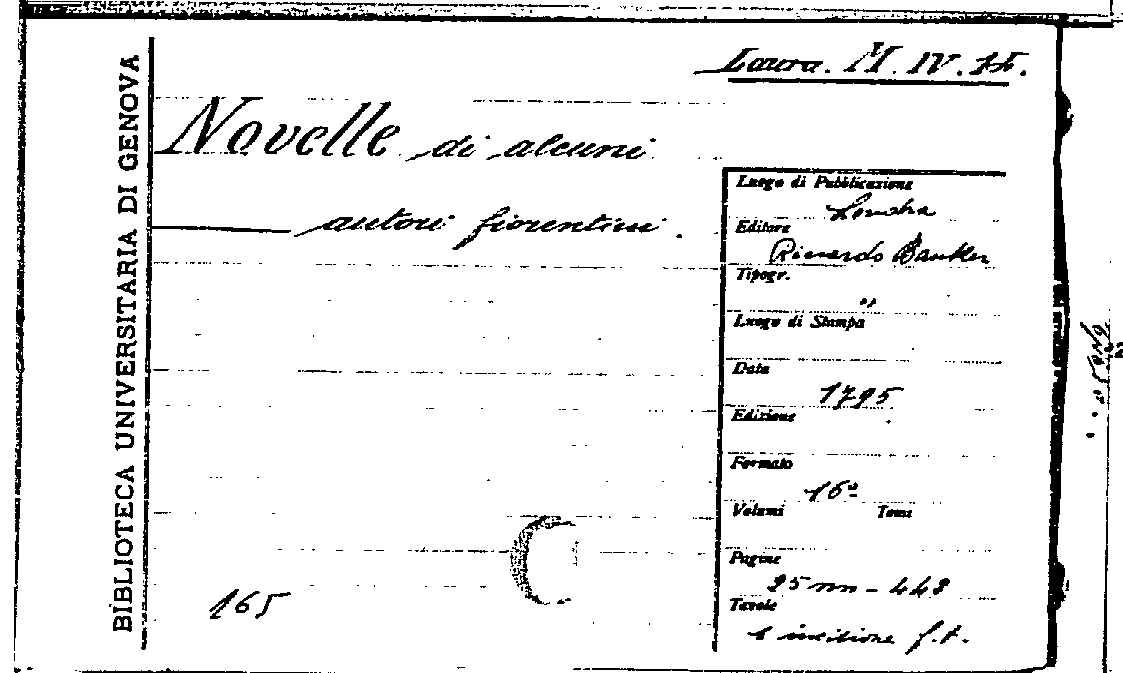 Laura. M. IV. 15.
BIBLIOTECA UNIVERSITARIA DI GENOVA
Novelle di alcuni
autori fiorentini.
Luogo di Pubblicazione
Londra
Editore
Riccardo Banker
Tipogr.
Luogo di Stampa
Data
1795
Edizione
Formato
16º
Volumi Tomi
Pagine
25 nn - 443
Tavole
1 incisione f.t.
165